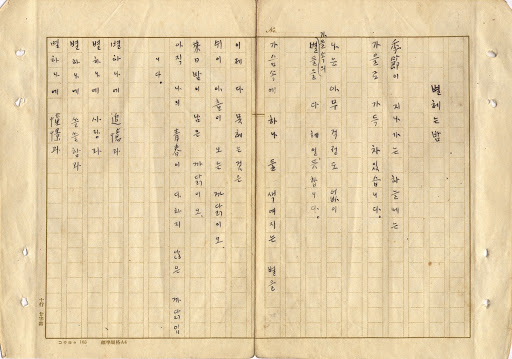 별헤는밤
季節이 지나가는 하늘에는
가을로 가득 차있습니다.
나는 아무 걱정도 없이
가을속의 별들을 다 헤일듯합니다.
가슴속에 하나 둘 색여지는 별을
이제 다 못헤는것은
쉬이 아츰이 오는 까닭이오,
來日밤이 남은 까닭이오,
아직 나의 靑春이 다하지 않은 까닭입
니다.
별하나에 追憶과
별하나에 사랑과
별하나에 쓸쓸함과
별하나에 憧憬과
コクヨ 標準規格A4